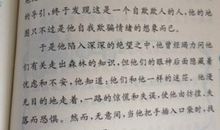 的寻引,终于发现这是一个自欺欺人的人,他的地
图只不过是他自我欺骗情绪的想象而已。
于是他陷入深深的绝望之中,他曾经竭力问他
们有关走出森林的知识,但他们的眼神后面隐藏着
忧虑和不安,他知道:他们和他一样的迷茫。他漫
无目的地走着,一路的惊慌和失误,使他由彷徨、失
落而恐惧。然而,无意间,当他把手插入口袋时,